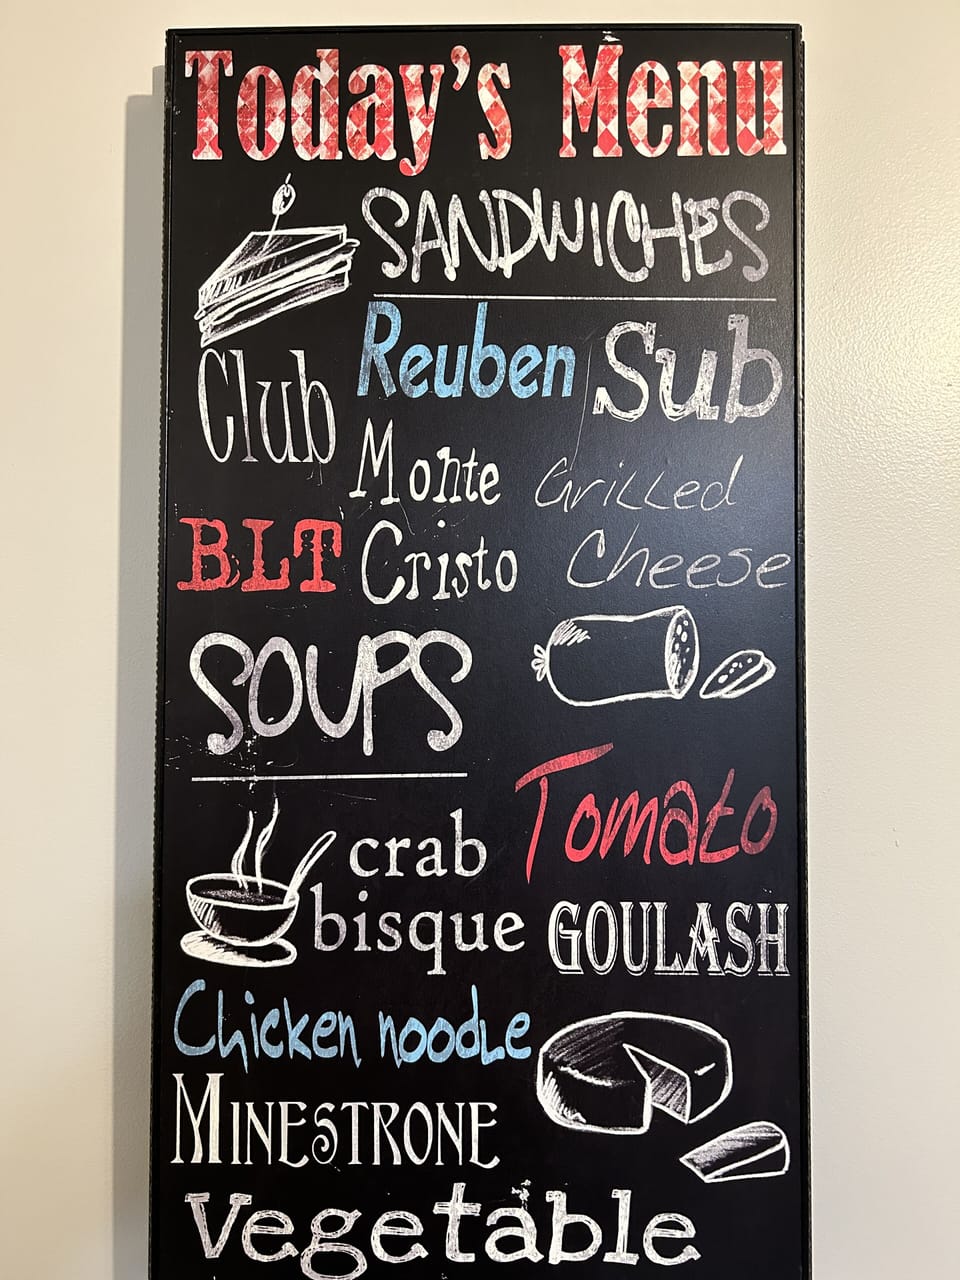 Today's Menu
SANDWICHES
Club
Reuben
Sub
Monte
Cristo
Grilled
Cheese
BLT
SOUPS
crab
bisque
Tomato
GOULASH
Chicken noodle
MINESTRONE
Vegetable